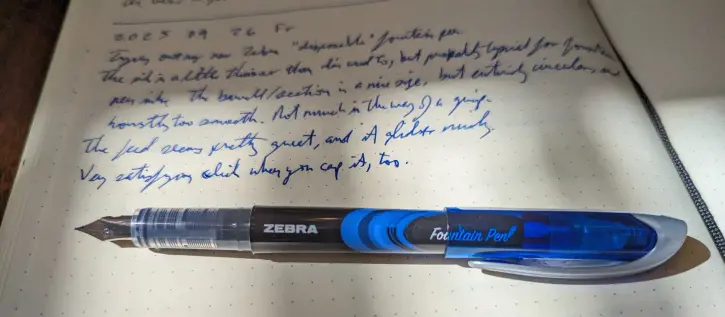 2025 09 26 Fr
Trying out my new Zebra "disposable" fountain pen.
The ink is a little thinner than I'm used to, but probably typical for fountain
pen inks. The barrel/section is a nice size, but entirely circular and
honestly too smooth. Not much in the way of a grip.
The feed seems pretty great, and it glides nicely.
Very satisfying click when you cap it, too.
ZEBRA
Fountain Pen